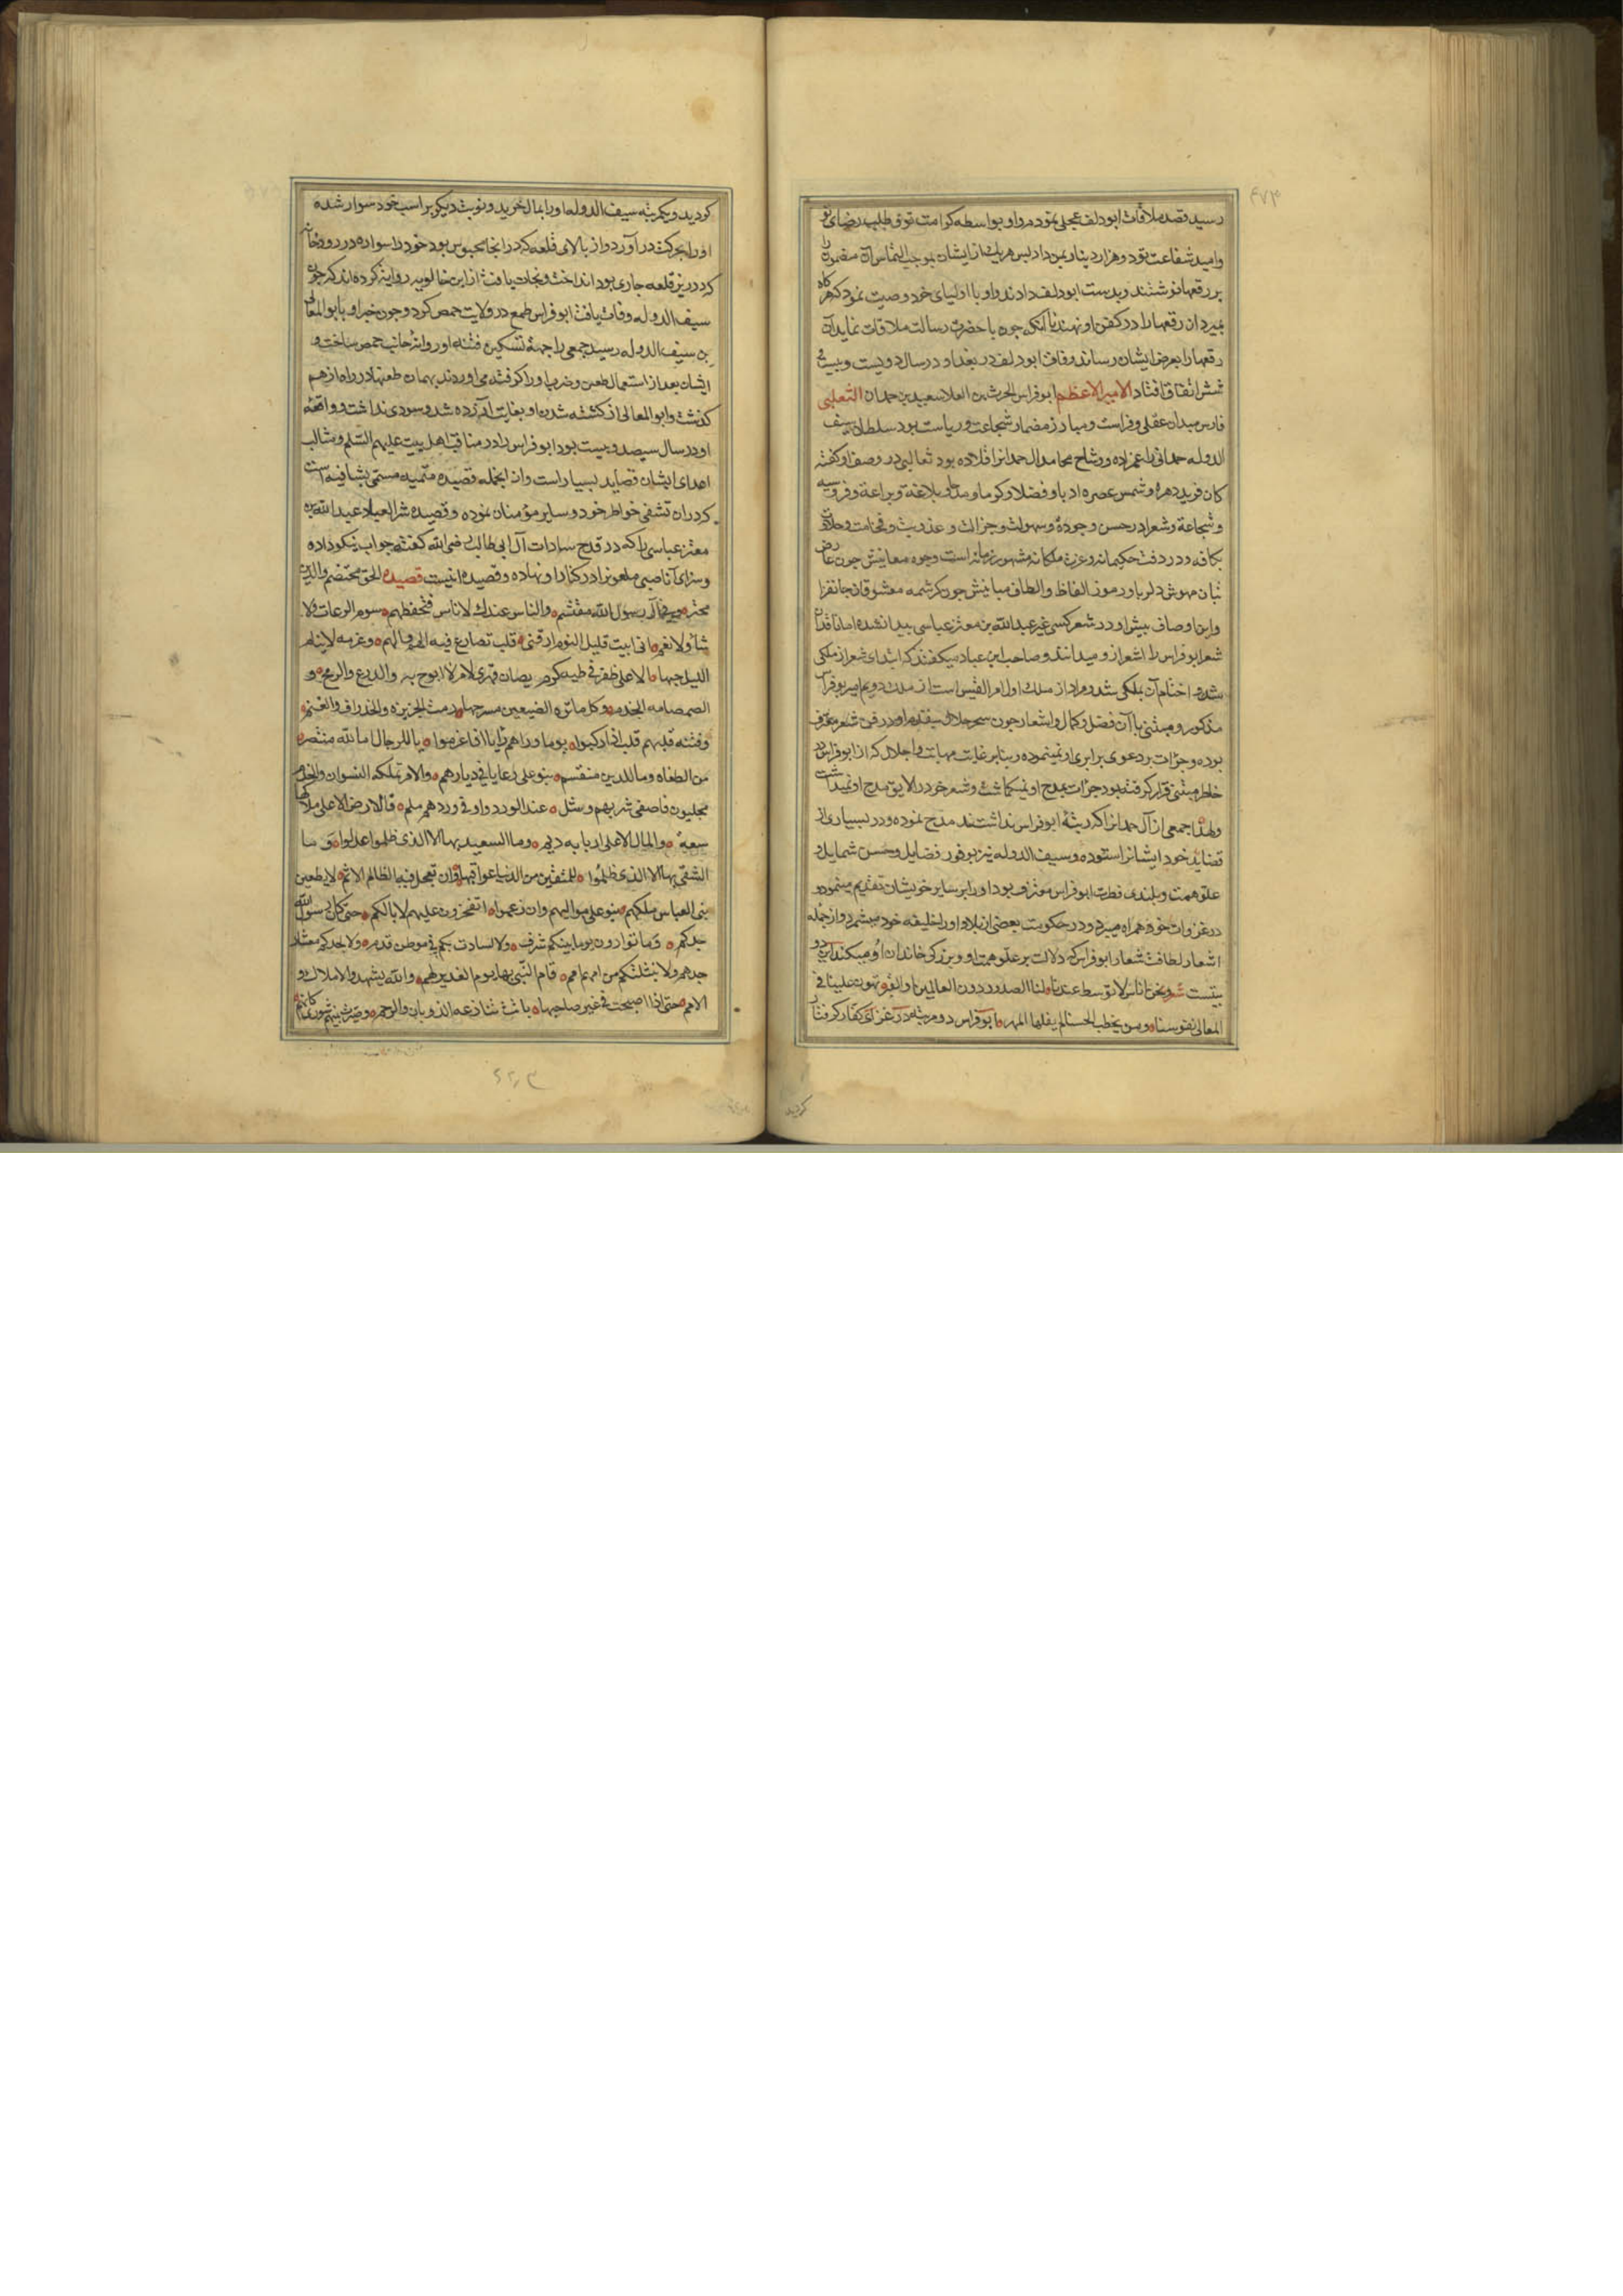 ۴۷۴
رسید قصد ملاقات ابودلف عجلی نمود مر او بواسطه کرامت توقع طلب رضای تو
وامید شفاعت تو دو هزار دینار بمن داد پس هریك از ایشان بموجب التماس آن مضمون را
بر رقعها نوشتند و بدست ابودلف دادند و او با اولیای خود وصیت نمود که هرگاه
بمیرد آن رقعها را در کفن او نهند تا آنکه چون با حضرت رسالت ملاقات نماید آن
رقعها را بعرض ایشان رساند وفات ابودلف در بغداد در سال دویست و بیست و
شش اتفاق افتاد الامیر الاعظم ابوفراس الحرث بن العلا سعید بن حمدان التغلبی
فارس میدان عقل و فراست و مبارز مضمار شجاعت و ریاست بود سلطان سیف
الدوله حمدانی را عمزاده و وشاح محامد آل حمدانرا قلاده بود ثعالبی در وصف او گفته
کان فرید دهره و شمس عصره ادبا و فضلا و کرما و مجدا و بلاغة و براعة و فروسیه
و شجاعة و شعر او در حسن و جوده و سهولت و جزالت و عذوبت و فخامت و حلاوت
بکافه و در دقت حکیمانه و عزت ملکانه مشهور زمانه است وجوه معانیش چون عارض
بتان مهوش دلربا و رموز الفاظ و الطاف مبانیش چون کرشمه معشوقان جانفزا
واین اوصاف پیش او در شعر کسی غیر عبد الله بن معتز عباسی پیدا نشده اما نقادان
شعر ابوفراس را اشعر ازو میدانند و صاحب ابن عباد میگفتند که ابتدای شعر از ملکی
شده و اختتام آن بملکی شد و مراد از ملك اول امرء القیس است از ملك دویم امیر ابوفراس
مذکور و متنبی با آن فضل و کمال و اشعار چون سحر حلال بتقدم او در فن شعر معترف
بوده و جرات بر دعوی برابری او نمینموده و بنابر غایت مهابت و اجلال که از ابوفراس در
خاطر متنبی قرار گرفته بود جرات بمدح او نیز نمیگماشت و شعر خود را لایق مدح او نمیداشت
ولهذا جمعی از آل حمدانرا که رتبۀ ابوفراس نداشتند مدح نموده و در بسیاری از
قصاید خود ایشانرا ستوده و سیف الدوله نیز بوفور فضایل و حسن شمایل و
علو همت و بلندی فطرت ابوفراس معترف بود و او را بر سایر خویشان تقدیم مینمود و
در غزوات خود همراه میبرد و در حکومت بعضی از بلاد او را خلیفه خود میشمرد و از جمله
اشعار لطافت شعار ابوفراس که دلالت بر علو همت او و بزرگی خاندان او میکند این دو
بیتست شعر ونحن اناس لا توسط عندنا لنا الصدر دون العالمین او القبر تهون علینا فی
المعالی نفوسنا ومن یخطب الحسنا لم یغلها المهر ابوفراس دو مرتبه در غزای کفار گرفتار
گردید
گردید و یکمرتبه سیف الدوله او را بمال خرید و نوبت دیگر بر اسب خود سوار شده
او را بحرکت در آورد و از بالای قلعه که در آنجا محبوس بود خود را سواره در رودخانه
که در زیر قلعه جاری بود انداخت و نجات یافت از ابن خالویه روایت کرده اند که چون
سیف الدوله وفات یافت ابوفراس طمع در ولایت حمص کرد و چون خبر او بابوالمعالی
بن سیف الدوله رسید جمعی را جهة تسکین فتنه او روانۀ جانب حمص ساخت و
ایشان بعد از استعمال طعن و ضرب او را گرفته می آوردند بهمان طعنها در راه از هم
گذشت و ابوالمعالی از کشته شدن او بغایت آزرده شد و سودی نداشت و واقعۀ
او در سال سیصد و بیست بود ابوفراس را در مناقب اهل بیت علیهم السلم و مثالب
اعدای ایشان قصاید بسیار است و از آنجمله قصیده میمیه مسمی بشافیه است
که در آن تشفی خواطر خود و سایر مؤمنان نموده و قصیده شر العباد عبد الله بن
معتز عباسی را که در قدح سادات آل ابی طالب رضی الله گفته جواب نیکو داده
و سزای آن ناصبی ملعونرا در کنار او نهاده و قصیده اینست قصیده الحق مهتضم والدین
مخترم وفیء آل رسول الله مقتسم والناس عندك لا ناس فتحفظهم سوم الرعات ولا
شاء ولا نعم انی ابیت قلیل النوم ارقنی قلب تصارع فیه الهم والهم وعزمه لاینام
اللیل صاحبها الا علی ظفر فی طیه کرم یصان مهری لامر لا ابوح به والدرع والرمح و
الصمصامه الخذم وکل مائرة الضبعین مسرحها رمث الجزیره والخذراف والغنم
وفتیه قلبهم قلب اذا رکبوا یوما وراهم رای اذا عزموا یا للرجال اما لله منتصر
من الطغاه وما للدین منتقم بنو علی رعایا فی دیارهم والامر تملکه النسوان والخدم
محلیون فاصفی شربهم وشل عند الورود واوفی وردهم لمم فالارض الا علی ملاکها
سعة والمال الا علی اربابه دیم وما السعید بها الا الذی ظلموا وما
الشقی بها الا الذی ظلموا للمتقین من الدنیا عواقبها وان تعجل فیها الظالم الاثم لا یطغین
بنی العباس ملکهم بنو علی موالیهم وان زعموا اتفخرون علیهم لا ابا لکم حتی کان رسول الله
جدکم وما توازن یوما بینکم شرف ولا تساوت بکم فی موطن قدم ولا لجدکم معشار
جدهم ولا نثیلتکم من امهم امم قام النبی بها یوم الغدیر لهم والله یشهد والاملاك و
الامم حتی اذا اصبحت فی غیر صاحبها باتت تنازعه الذوبان والرخم وصیرت بینهم شوری کانهم